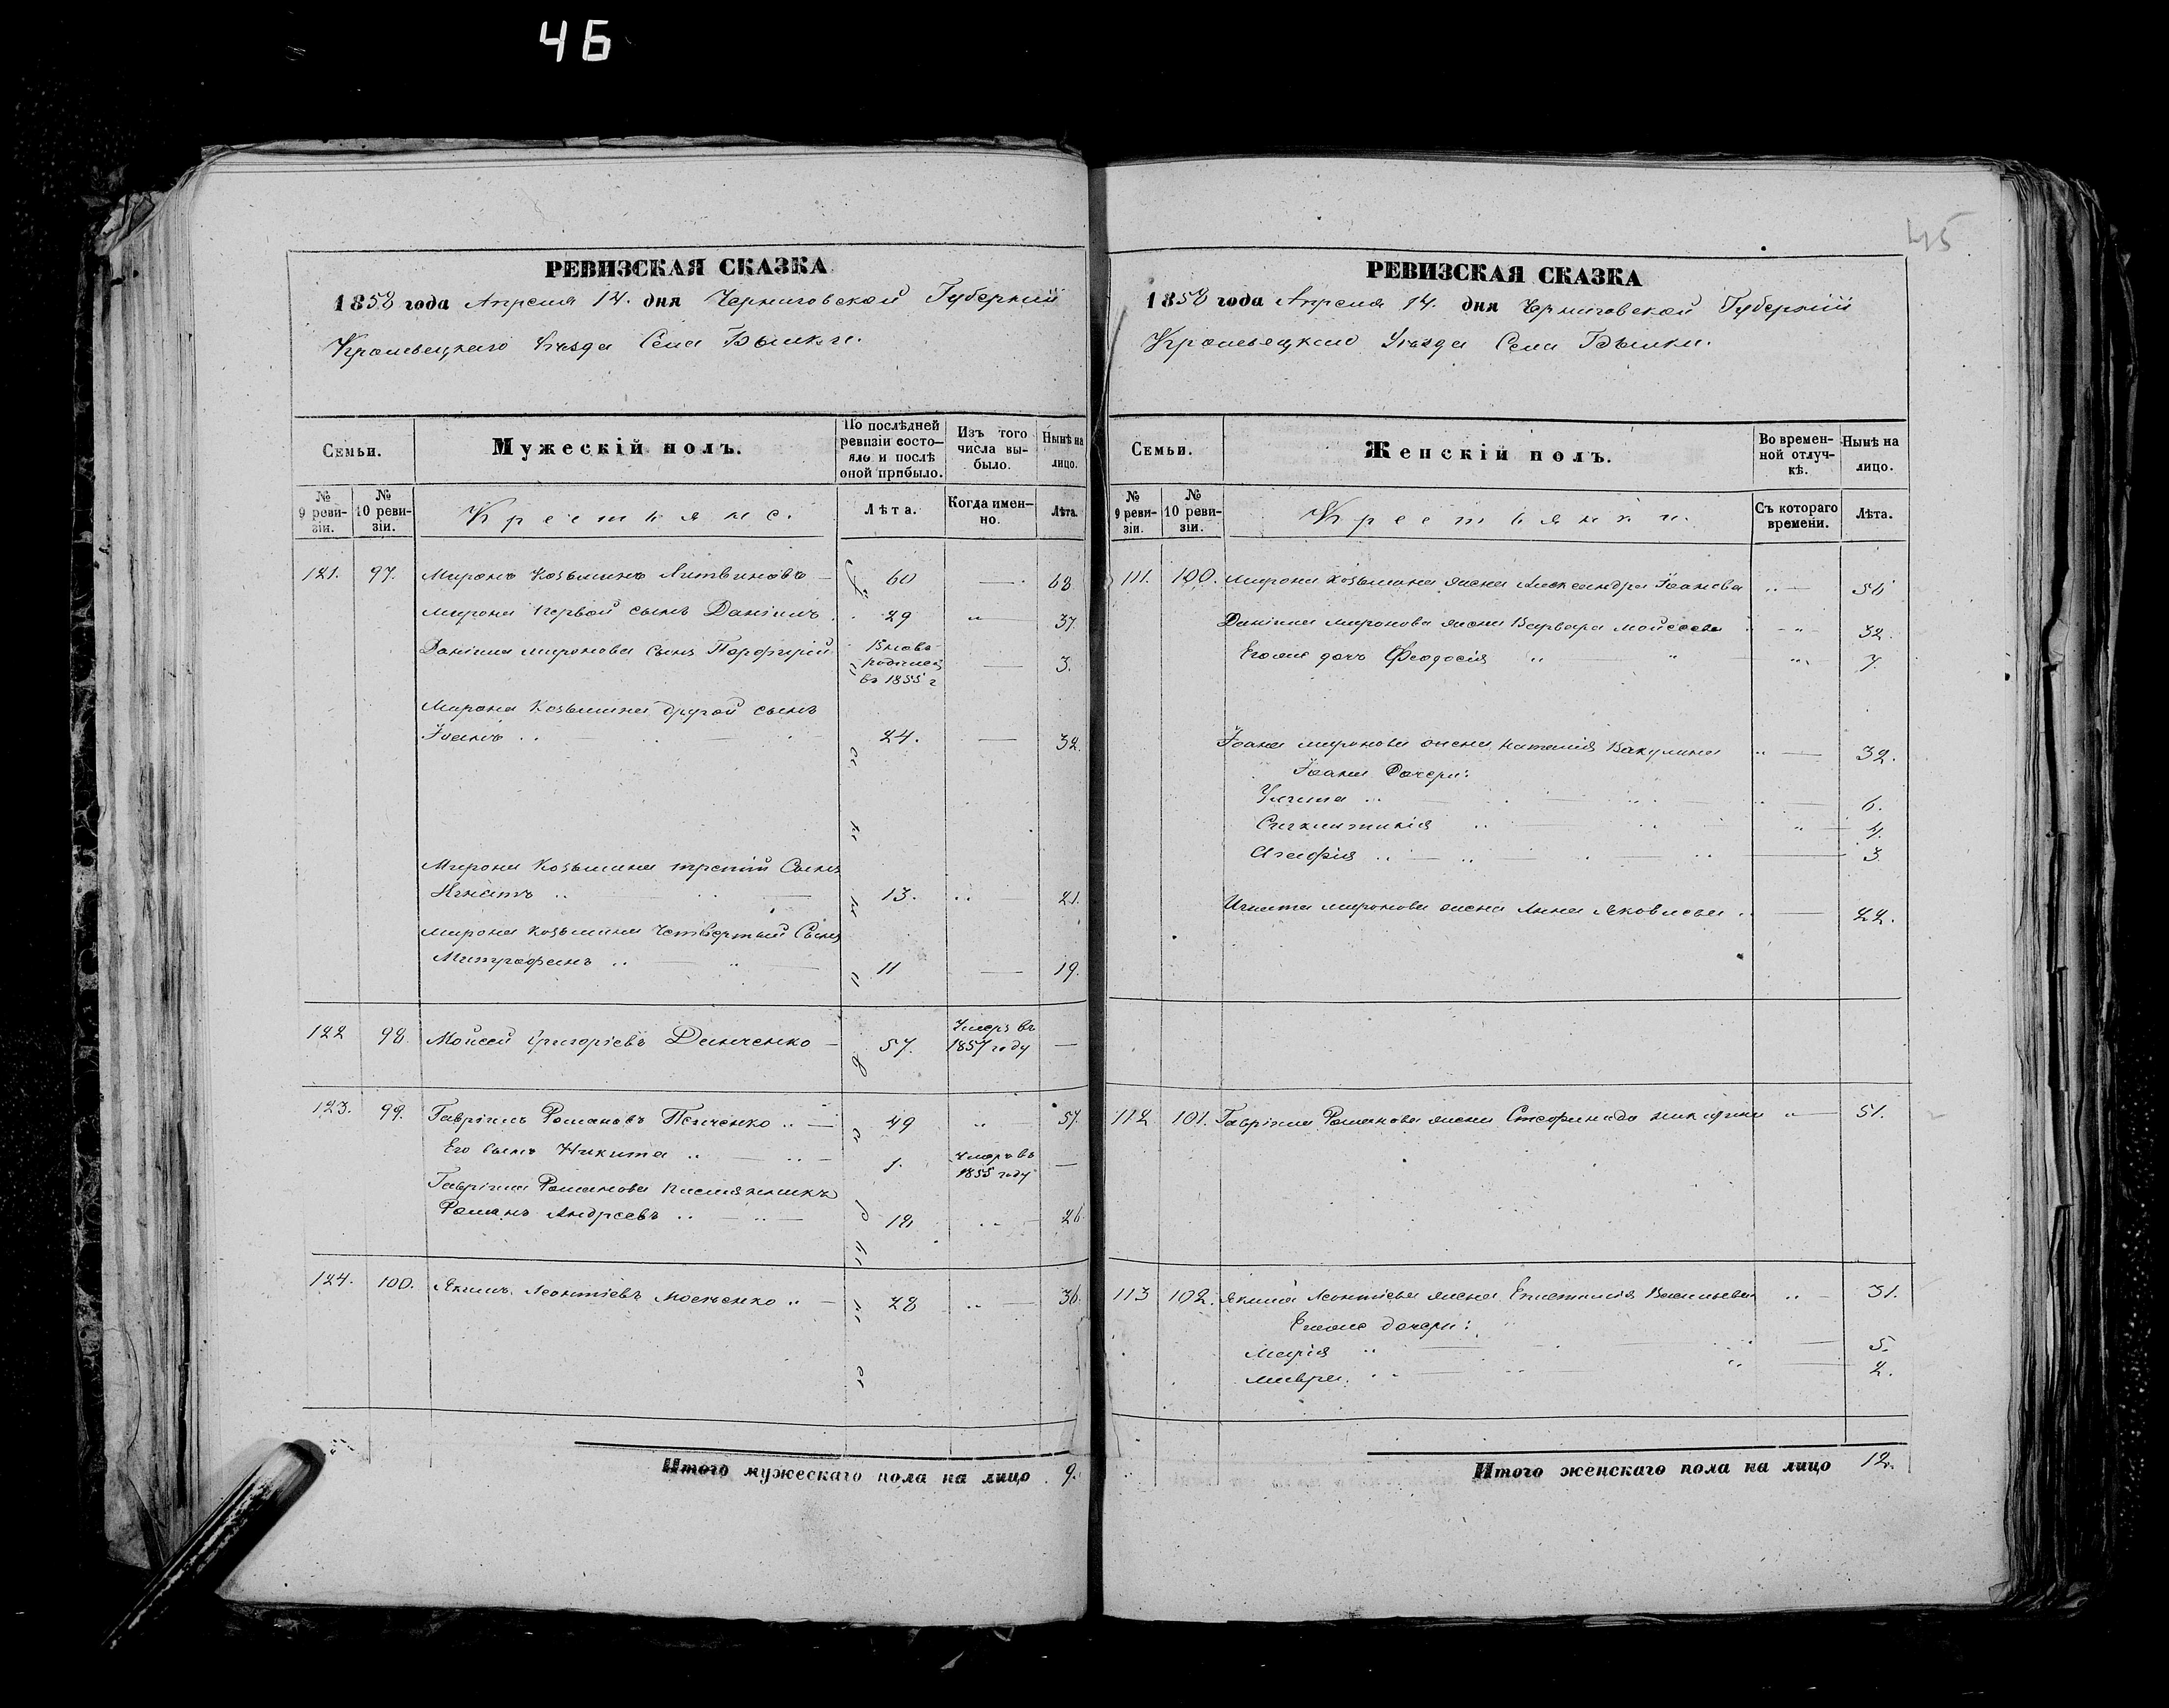 46
45
РЕВИЗСКАЯ СКАЗКА
1858 года Апреля 14. дня Черниговской Губерніи
Кролевецкаго Уезда Села Бълики.
Семьи.
Мужескій полъ.
По послѣдней ревизіи состо-
яло и послѣ оной прибыло.
Изъ того числа вы-
было.
Нынѣ на лицо.
№ 9 реви-
зіи.
№ 10 реви-
зіи.
Крестьяне.
Лѣта.
Когда имен-
но.
Лѣта.
121. 97. Миронъ Козьминъ Литвиновъ 60 68
Мирона первой сынъ Даніилъ 29 37.
Даніила Миронова сынъ Порфирій Вново- 3.
родился
въ 1855 г
Мирона Козьмина другой сынъ
Іоанъ 24. 32.
Мирона Козьмина третій Сынъ
Игнатъ 13. 21.
Мирона Козьмина Четвертый Сынъ
Митрофанъ 11 19.
122 98. Мойсей Григоріевъ Данченко 57. Умеръ въ
1857 году
123. 99. Гавріилъ Романовъ Панченко 49 57.
Его сынъ Никита 1. Умеръ въ
1855 году
Гавріила Романова племянникъ
Романъ Андреевъ 18 26.
124. 100. Якимъ Леонтіевъ Мосченко 28 36.
Итого мужескаго пола на лицо 9.
РЕВИЗСКАЯ СКАЗКА
1858 года Апреля 14. дня Черниговской Губерніи
Кролевецкаго Уезда Села Бълики.
Семьи.
Женскій полъ.
Во времен-
ной отлуч-
кѣ.
Нынѣ на лицо.
№ 9 реви-
зіи.
№ 10 реви-
зіи.
Крестьянки.
Съ котораго времени.
Лѣта.
111. 100. Мирона Козьмина жена Александра Іоанова 56
Даніила Миронова жена Варвара Мойсеева 32.
Егоже дочь Феодосія 7.
Іоана Миронова жена Наталія Вакулина 32.
Іоана Дочери:
Улита 6.
Синклитикія 4.
Агафія 3
Игната Миронова жена Анна Яковлева 22.
112 101. Гавріила Романова жена Стефанида 51.
113 102. Якима Леонтіева жена Епистимія Васильева 31.
Егоже дочери:
Марія 5.
Мавра. 2.
Итого женскаго пола на лицо 12.